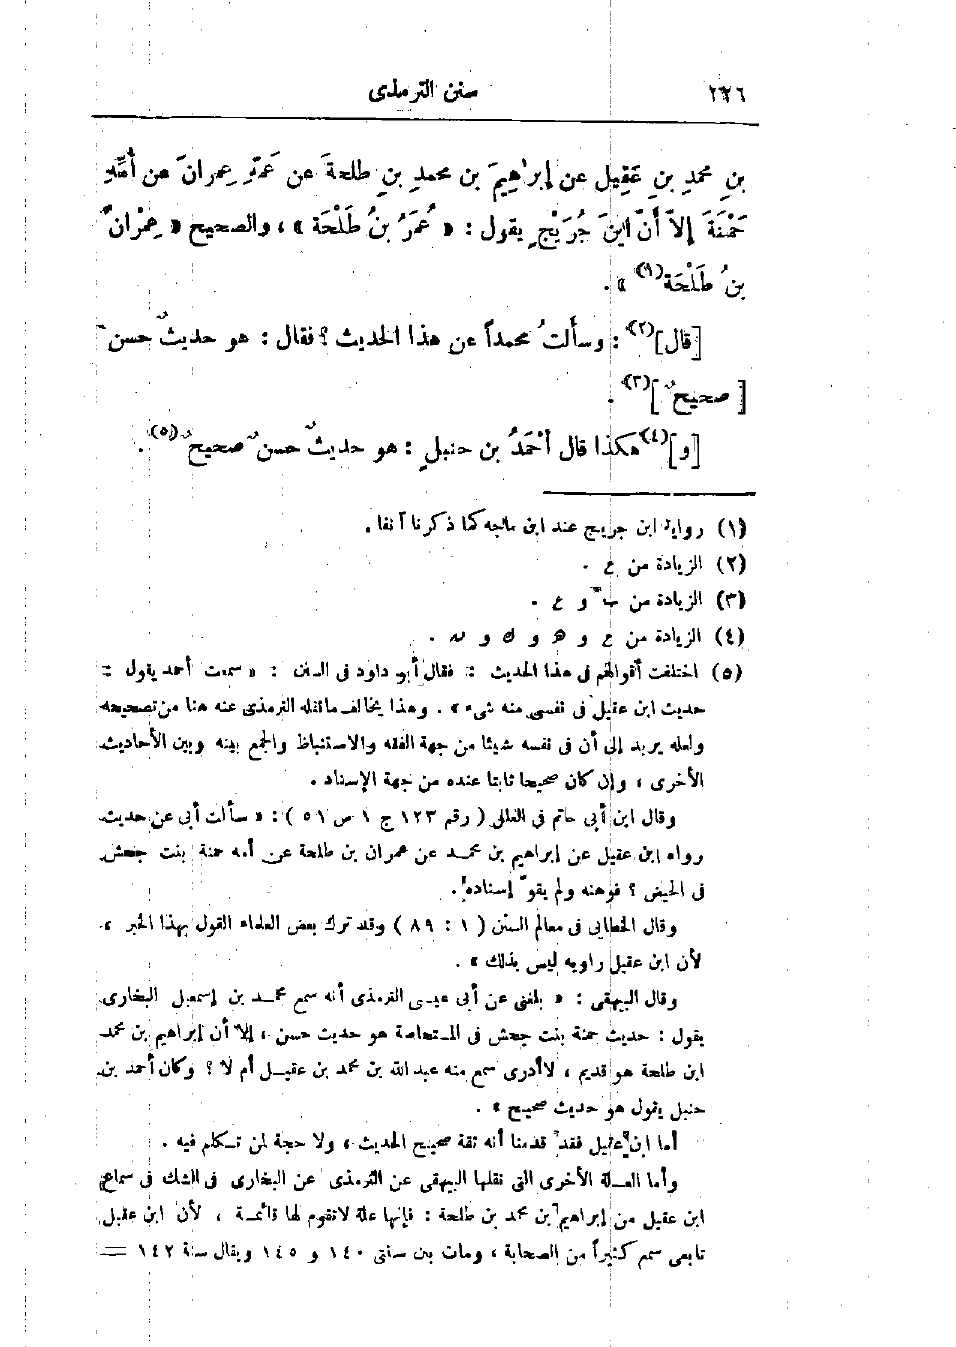 ٢٢٦
سنن الترمذى
بنِ محمدِ بنِ عَقِيلٍ عن إبراهِيمَ بن محمدِ بنِ طلحةَ عن عَمِّهِ عِمرانَ عن أُمِّهِ
حَمْنَةَ إلاّ أنّ ابنَ جُرَيْجٍ يقول : « عُمَرُ بنُ طَلْحَة » ، والصحيح « عِمْرانُ
بنُ طَلْحَة(١) » .
[قال](٢) : وسألتُ محمداً عن هذا الحديث ؟ فقال : هو حديثٌ حسنٌ
[ صحيحٌ ](٣) .
[و](٤) هكذا قال أَحْمَدُ بن حنبلٍ : هو حديثٌ حسنٌ صحيحٌ(٥) .
(١) رواية ابن جريج عند ابن ماجه كما ذكرنا آنفا .
(٢) الزيادة من ع .
(٣) الزيادة من ب و ع .
(٤) الزيادة من ع و ه و ك و نه .
(٥) اختلفت أقوالهم فى هذا الحديث : فقال أبو داود فى السنن : « سمعت أحمد يقول :
حديث ابن عقيل فى نفسى منه شىء » . وهذا يخالف ما نقله الترمذى عنه هنا من تصحيحه
ولعله يريد إلى أن فى نفسه شيئا من جهة الفقه والاستنباط والجمع بينه وبين الأحاديث
الأخرى ، وإن كان صحيحا ثابتا عنده من جهة الإسناد .
وقال ابن أبى حاتم فى العلل ( رقم ١٢٣ ج ١ ص ٥١ ) : « سألت أبى عن حديث
رواه ابن عقيل عن إبراهيم بن محمد عن عمران بن طلحة عن أمه حمنة بنت جحش
فى الحيض ؟ فوهنه ولم يقوّ إسناده » .
وقال الخطابى فى معالم السنن ( ١ : ٨٩ ) وقد ترك بعض العلماء القول بهذا الخبر ،
لأن ابن عقيل راويه ليس بذلك » .
وقال البيهقى : « بلغنى عن أبى عيسى الترمذى أنه سمع محمد بن إسمعيل البخارى
يقول : حديث حمنة بنت جحش فى المستحاضة هو حديث حسن ، إلا أن إبراهيم بن محمد
ابن طلحة هو قديم ، لا أدرى سمع منه عبد الله بن محمد بن عقيل أم لا ؟ وكان أحمد بن
حنبل يقول هو حديث صحيح » .
أما ابن عقيل فقد قدمنا أنه ثقة صحيح الحديث ، ولا حجة لمن تكلم فيه .
وأما العلة الأخرى التى نقلها البيهقى عن الترمذى عن البخارى فى الشك فى سماع
ابن عقيل من إبراهيم بن محمد بن طلحة : فإنها علة لا تقوم لها قائمة ، لأن ابن عقيل
تابعى سمع كثيراً من الصحابة ، ومات بين سنتى ١٤٠ و ١٤٥ ويقال سنة ١٤٢ =